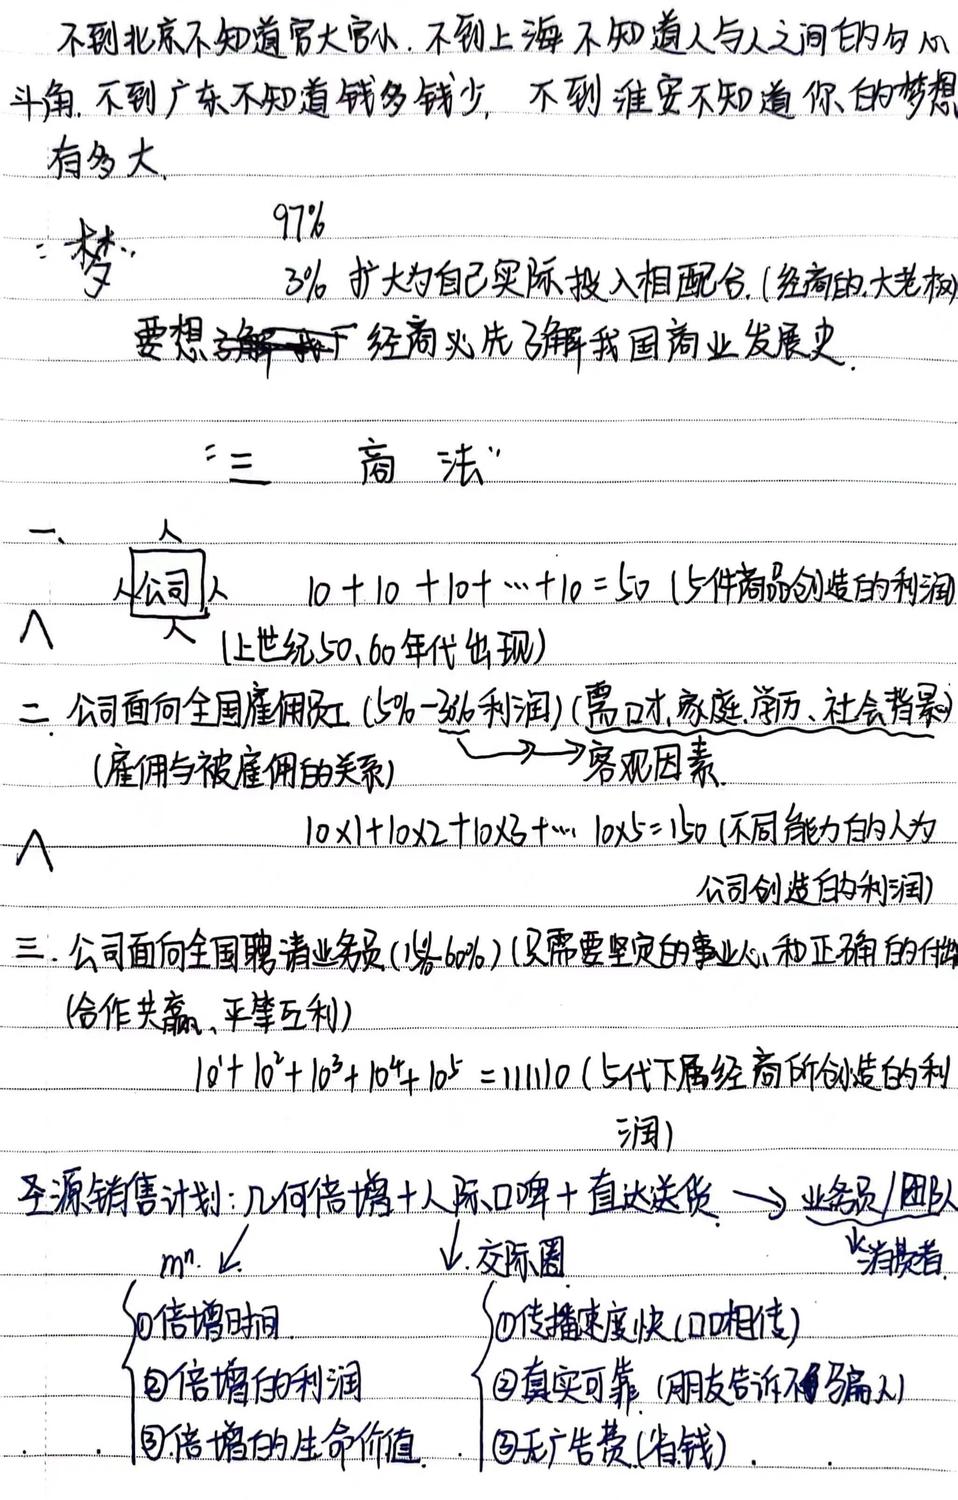 不到北京不知道官大官小. 不到上海不知道人与人之间的勾心
斗角. 不到广东不知道钱多钱少, 不到淮安不知道你的梦想
有多大.
97%
梦
3% 扩大为自己实际投入相配合. (经商的大老板)
要想 经商必先了解我国商业发展史.
"三 商 法"
一、
人
人 公司 人
人
10 + 10 + 10 + … + 10 = 50 (5件商品创造的利润
(上世纪50、60年代出现)
二. 公司面向全国雇佣员工 (5%-3%利润) (需口才、家庭、学历、社会背景)
(雇佣与被雇佣的关系) → → 客观因素.
10×1+10×2+10×3+… 10×5=150 (不同能力的人为
公司创造的利润)
三. 公司面向全国聘请业务员 (60%) (只需要坚定的事业心和正确的付出
(合作共赢、平等互利)
10¹+10²+10³+10⁴+10⁵ =111110 (5代下属经商所创造的利
润)
圣源销售计划: 几何倍增+人际口碑+直达送货 → 业务员/团队
mⁿ. ↙ ↓. 交际圈 消费者.
①倍增时间. ①传播速度快 (口口相传)
②倍增的利润 ②真实可靠 (朋友告诉不骗人)
③倍增的生命价值. ③无广告费 (省钱).